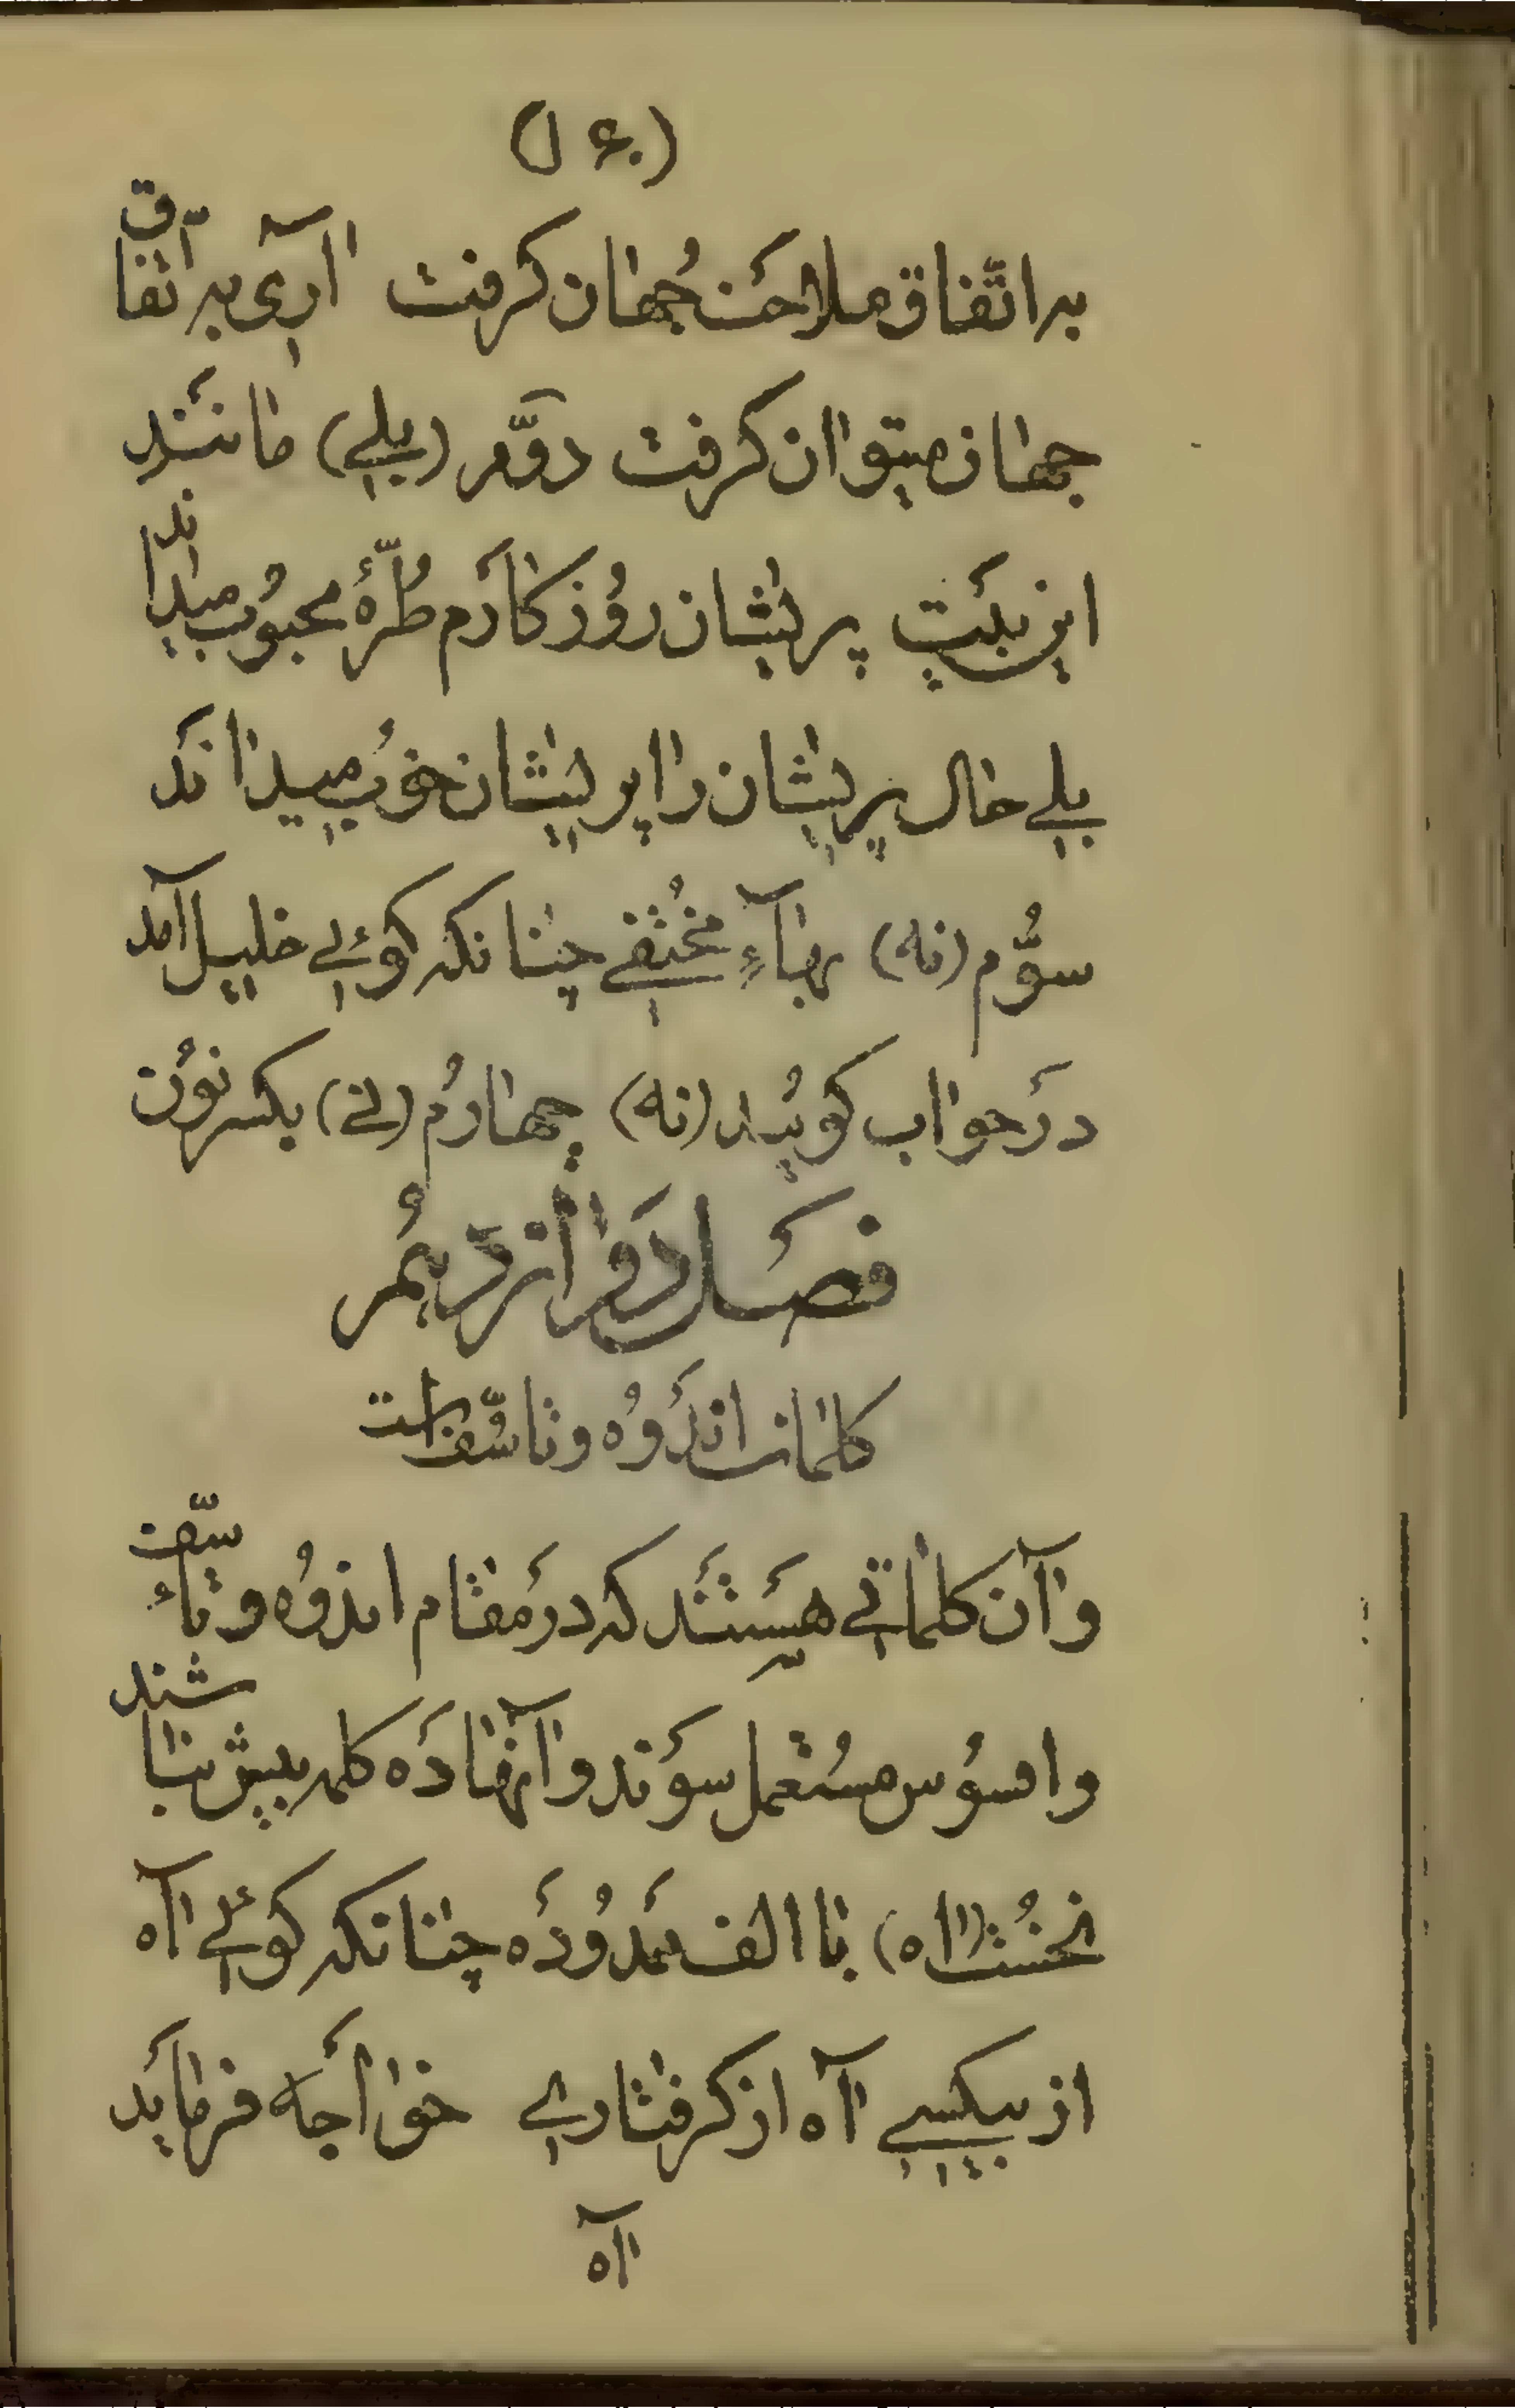 (۱۶۰)
به اتّفاق ملاحت جُهان کرفت آری به اتّفاق
جهان میتوان کرفت دوّم (بلی) مانَند
این بَیت پریشان روُزکارَم طُرّهٔ محبوُب میداند
بلی حال پریشان را پریشان خوُب میدانَد
سوُّم (نه) بهآءِ مخُتفی چنانکه کوئی خلیل آمد
دَرجواب کویُد (نه) چهارُم (نی) بکسر نوُن
فصَل دَوازدهُم
کلمات اندَوُه و تاسُّف است
و آن کلماتی هَستَند که درَ مقام اندوُه و تأسّف
و افسوُس مسُتعمل سوَند و آنها دَه کلمه بیش نباشند
نخسُت (اه) با الف ممَدوُدَه چنانکه کوئی آه
از بیکسی آه از کرفتاری خواجَه فرمایَد
آه